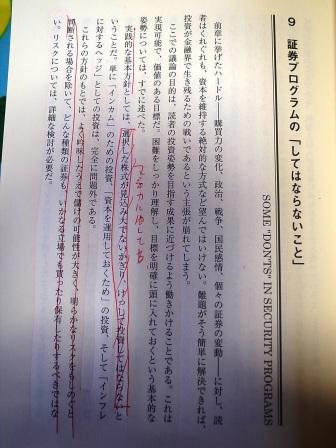 9　証券プログラムの「してはならないこと」
SOME "DON'TS" IN SECURITY PROGRAMS
前章に挙げたハードル――購買力の変化、政治、戦争、国民感情、個々の証券の変動――に対し、読
者はくれぐれも、資本を維持する絶対的な方式など望んではいけない。難題がそう簡単に解決できれば、
投資が金融界で生き残るための戦いであるという主張が崩れてしまう。
ここでの議論の目的は、読者の投資姿勢を目指す成果に近づけるよう働きかけることである。これは
実現可能で、価値のある目標だ。困難をしっかり理解し、目標を明確に頭に入れておくという基本的な
姿勢については、すでに述べた。
実践的な基本方針としては、選択した株式が見込み大でないかぎり、けっして投資してはならないと
いうことだ。単に「インカム」のための投資、「資本を運用しておくため」の投資、そして「インフレ
に対するヘッジ」としての投資は、完全に問題外である。
これらの方針のもとでは、よく吟味したうえで儲けの可能性が大きく、明らかなリスクをものともず
判断される場合を除いて、どんな種類の証券も、いかなる立場でも買ったり保有したりするべきではな
い。リスクについては、詳細な検討が必要だ。